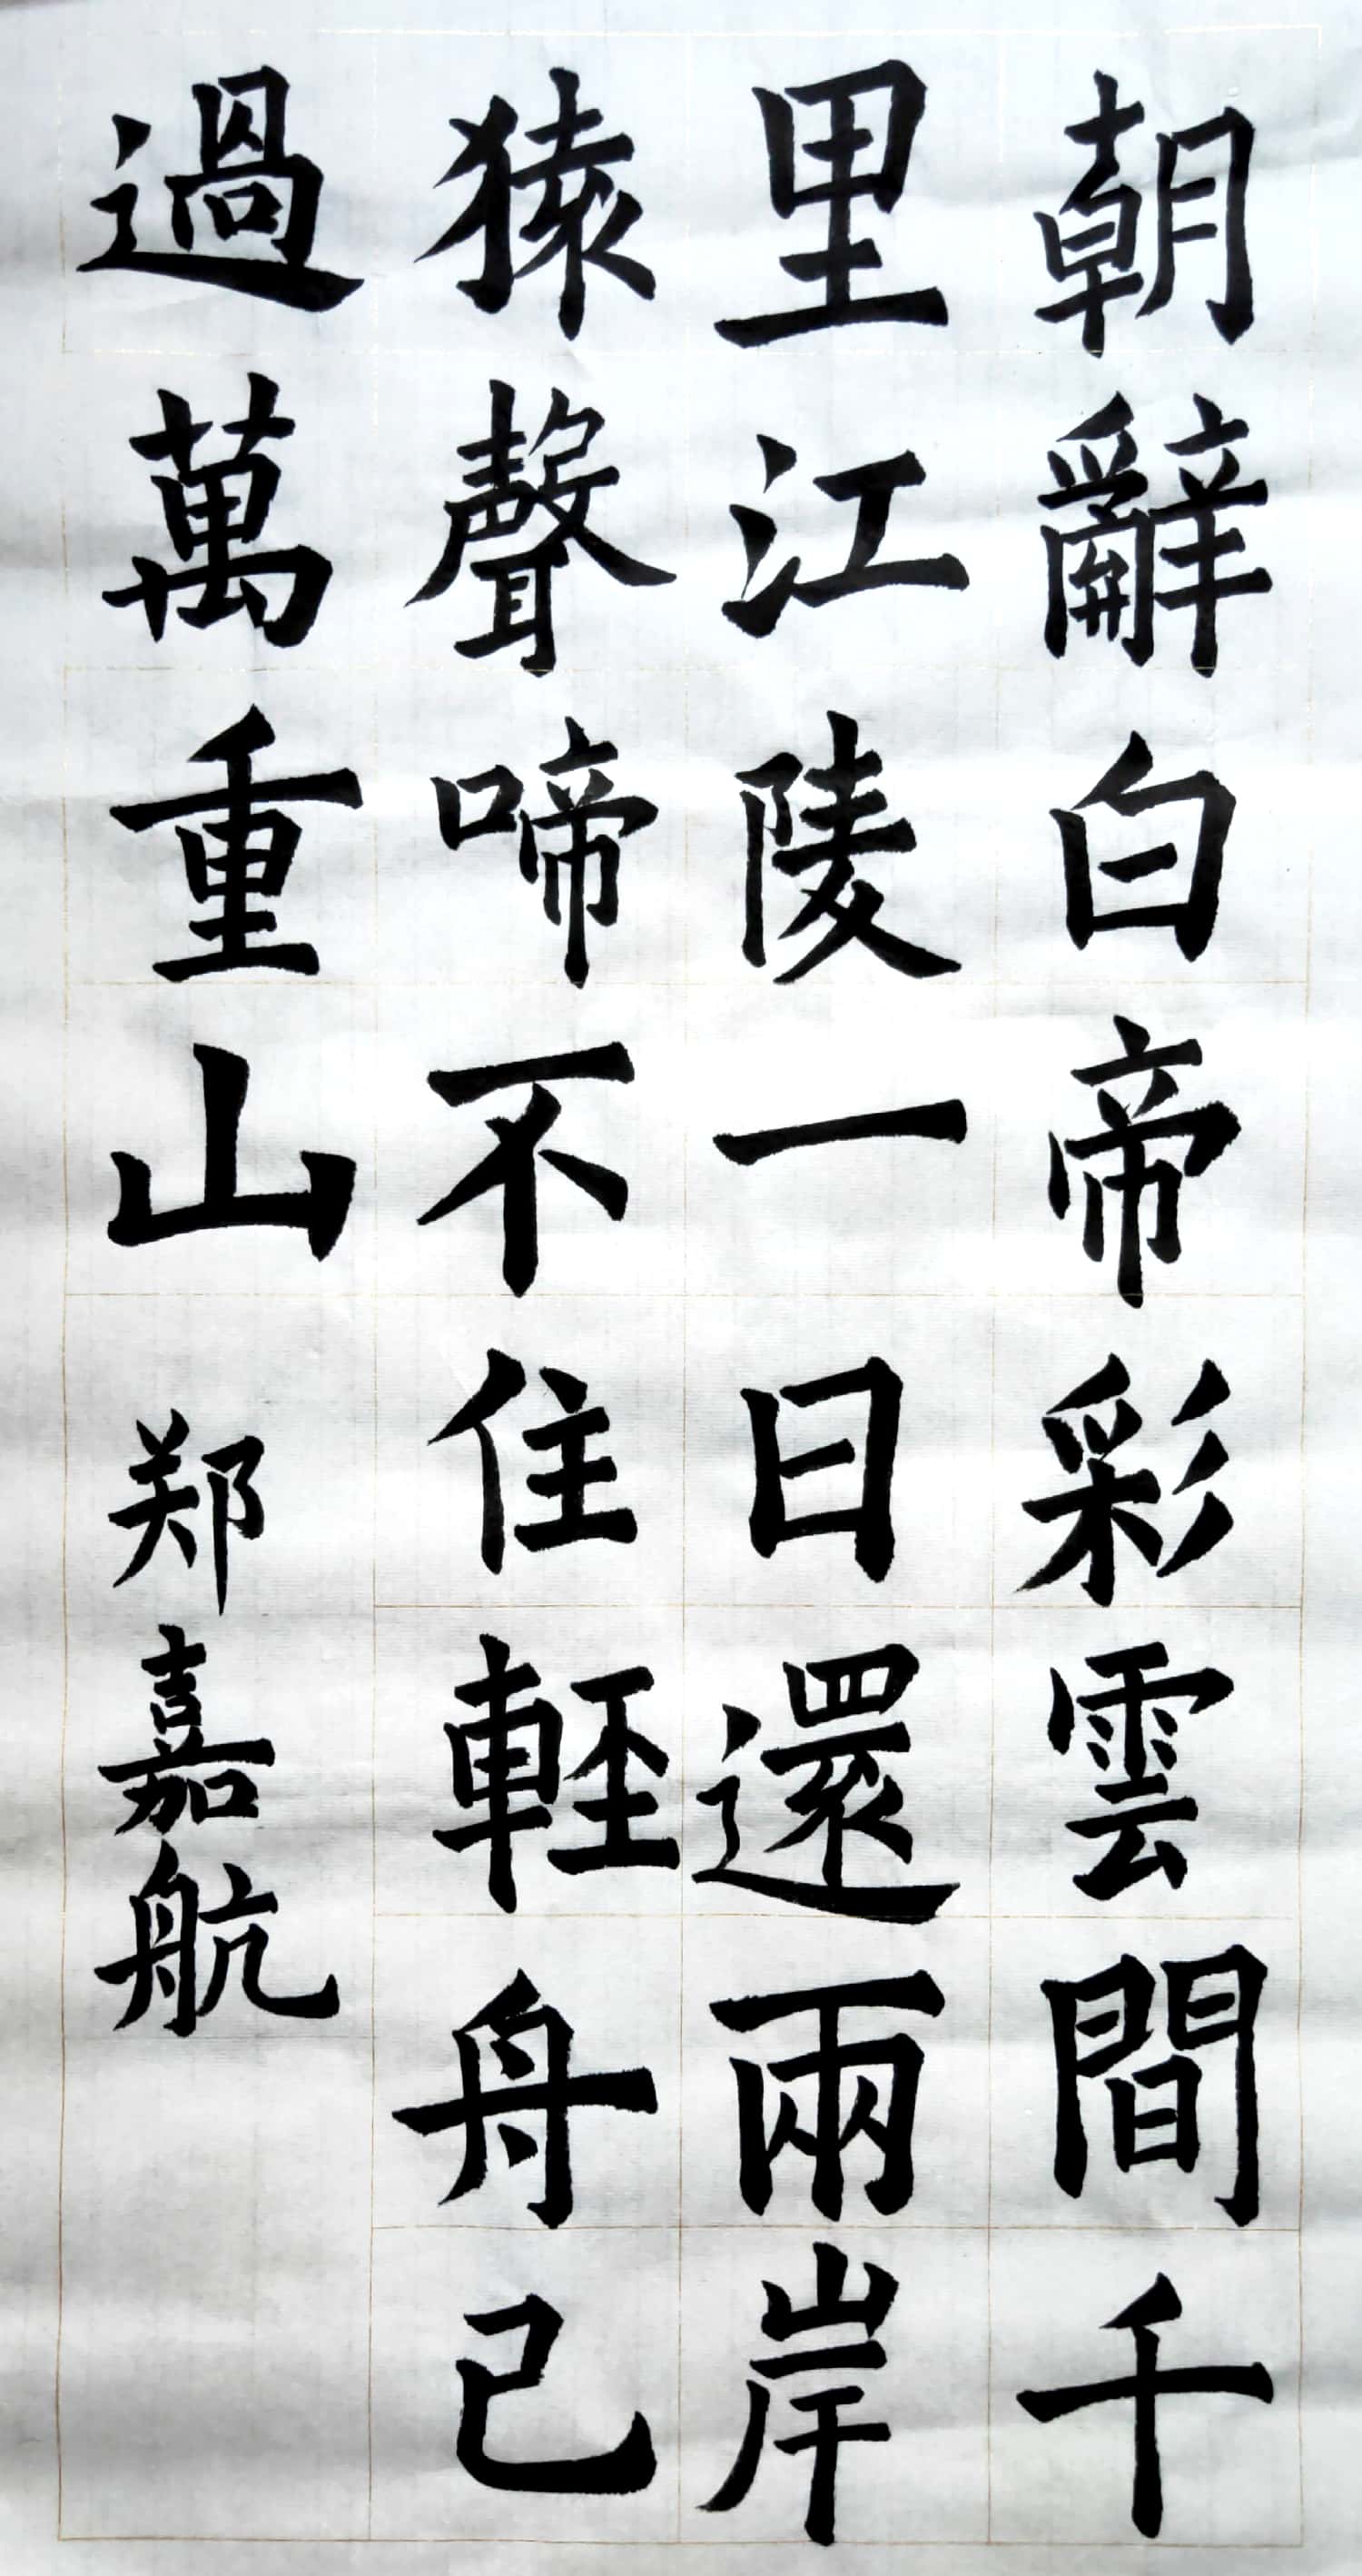 朝辭白帝彩雲間千
里江陵一日還兩岸
猿聲啼不住輕舟已
過萬重山 郑嘉航